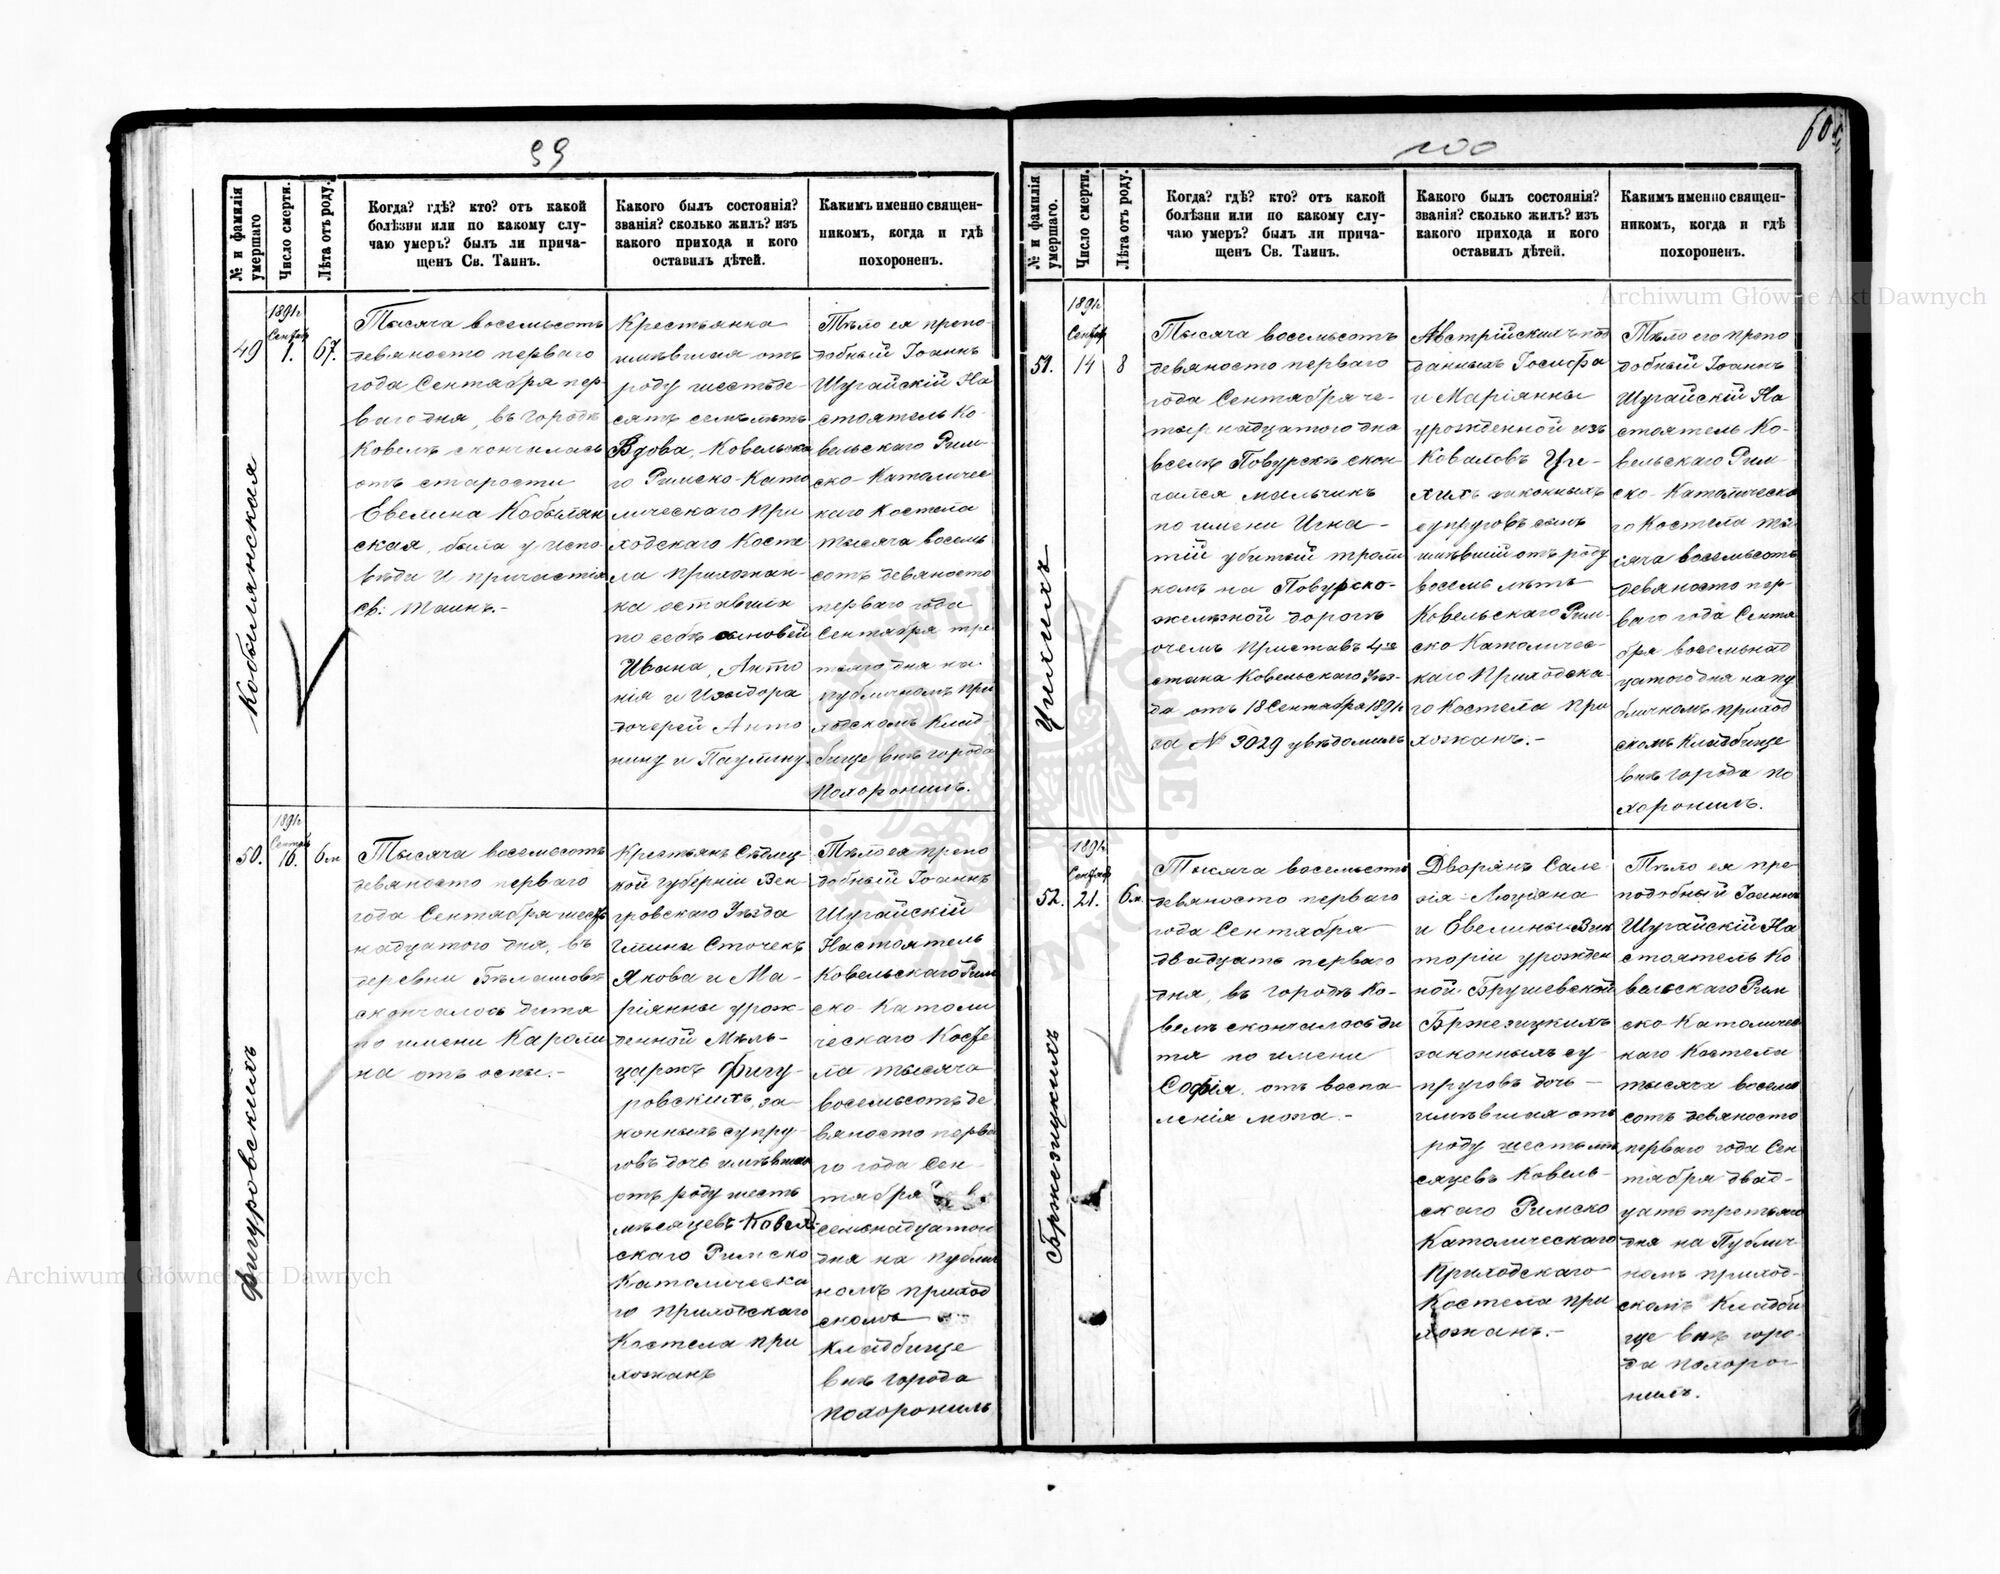 99
№ и фамилія умершаго
Число смерти.
Лѣта отъ роду.
Когда? гдѣ? кто? отъ какой
болѣзни или по какому слу-
чаю умеръ? былъ ли прича-
щенъ Св. Таинъ.
Какого былъ состоянія?
званія? сколько жилъ? изъ
какого прихода и кого
оставилъ дѣтей.
Какимъ именно священ-
никомъ, когда и гдѣ
похороненъ.
49
Кобылянская
1891г
Сентяб
1.
67.
Тысяча восемьсотъ
девяносто перваго
года Сентября пер-
ваго дня, въ городѣ
Ковелѣ скончалась
отъ старости
Евелина Кобылян
ская, была у испо-
вѣди и причастія
св: Таинъ.-
Крестьянка
имѣвшая отъ
роду шестьде-
сятъ семь лѣтъ
Вдова, Ковельска
го Римско-Като
лическаго При
ходскаго Косте
ла прихожан-
ка оставила
по себѣ сыновей
Ивана, Анто
нія и Изидора
дочерей Анто
нину и Паулину.
Тѣло ея препо-
добный Іоаннъ
Шугайскій На
стоятель Ко-
вельскаго Рим-
ско-Католичес-
каго Костела
тысяча восемь
сотъ девяносто
перваго года
Сентября тре
тьяго дня на
публичномъ при
ходскомъ клад
бище внѣ города
похоронилъ.
50.
Фигуровскихъ
1891г
Сентяб
16.
6м
Тысяча восемьсотъ
девяносто перваго
года Сентября шест
надцатого дня, въ
деревни Бѣлашовѣ
скончалось дитя
по имени Кароли
на отъ оспы.-
Крестьянъ Сѣдлец
кой губерніи Вен-
гровскаго Уѣзда
Гмины Сточекъ
Якова и Ма-
ріянны урож-
денной Мѣль-
царжъ Фигу-
ровскихъ, за-
конныхъ супру-
говъ дочь имѣвшая
отъ роду шесть
мѣсяцевъ Ковель-
скаго Римско
Католическа
го приходскаго
Костела при
хожанъ
Тѣло ея препо
добный Іоаннъ
Шугайскій
Настоятель
Ковельскаго Рим
ско-Католи
ческаго Косте
ла тысяча
восемьсотъ де
вяносто перва
го года Сен-
тября
семьнадцатого
дня на публич
номъ приход
скомъ
кладбище
внѣ города
похоронилъ
100
60
№ и фамилія умершаго.
Число смерти.
Лѣта отъ роду.
Когда? гдѣ? кто? отъ какой
болѣзни или по какому слу-
чаю умеръ? былъ ли прича-
щенъ Св. Таинъ.
Какого былъ состоянія?
званія? сколько жилъ? изъ
какого прихода и кого
оставилъ дѣтей.
Какимъ именно священ-
никомъ, когда и гдѣ
похороненъ.
51.
1891г
Сентяб
14
8
Тысяча восемьсотъ
девяносто перваго
года Сентября че-
тырнадцатого дня
въ селѣ Повурскѣ скон
чался мальчикъ
по имени Игна-
тій убитый
комъ на Повурско-
желѣзной дорогѣ
очемъ Приставъ 4го
стана Ковельскаго Уѣз-
да отъ 18 Сентября 1891г
за № 3029 увѣдомилъ
Австрійскихъ под
данныхъ Іосифа
и Маріянны
урожденной изъ
Коваловъ
законныхъ
супруговъ сынъ
имѣвшій отъ роду
восемь лѣтъ
Ковельскаго Рим-
ско Католичес-
каго Приходска-
го Костела при
хожанъ.-
Тѣло его препо
добный Іоаннъ
Шугайскій На
стоятель Ко-
вельскаго Рим-
ско-Католическа
го Костела ты
сяча восемьсотъ
девяносто пер-
ваго года Сентя
бря восемьнад
цатого дня на пу
бличномъ приход
скомъ кладбище
внѣ города по
хоронилъ.
52.
Бржезицкихъ
1891г
Сентяб
21.
6м.
Тысяча восемьсотъ
девяносто перваго
года Сентября
двадцать перваго
дня, въ городѣ Ко-
велѣ скончалось ди
тя по имени
Софія, отъ воспа-
ленія мозга.-
Дворянъ Сале-
зія-Люціяна
и Евелины Вик
торіи урожден
ной Брушевской
Бржезицкихъ
законныхъ су-
пруговъ дочь-
имѣвшая отъ
роду шесть мѣ
сяцевъ Ковель-
скаго Римско
Католическаго
Приходскаго
Костела при
хожанъ.-
Тѣло ея пре-
подобный Іоаннъ
Шугайскій На
стоятель Ко
вельскаго Рим
ско-Католичес
каго Костела
тысяча восемь
сотъ девяносто
перваго года Сен
тября двад-
цать третьяго
дня на Публич-
номъ приход-
скомъ Кладби
ще внѣ горо-
да похоро-
нилъ.
Archiwum Główne Akt Dawnych
Archiwum Główne Akt Dawnych